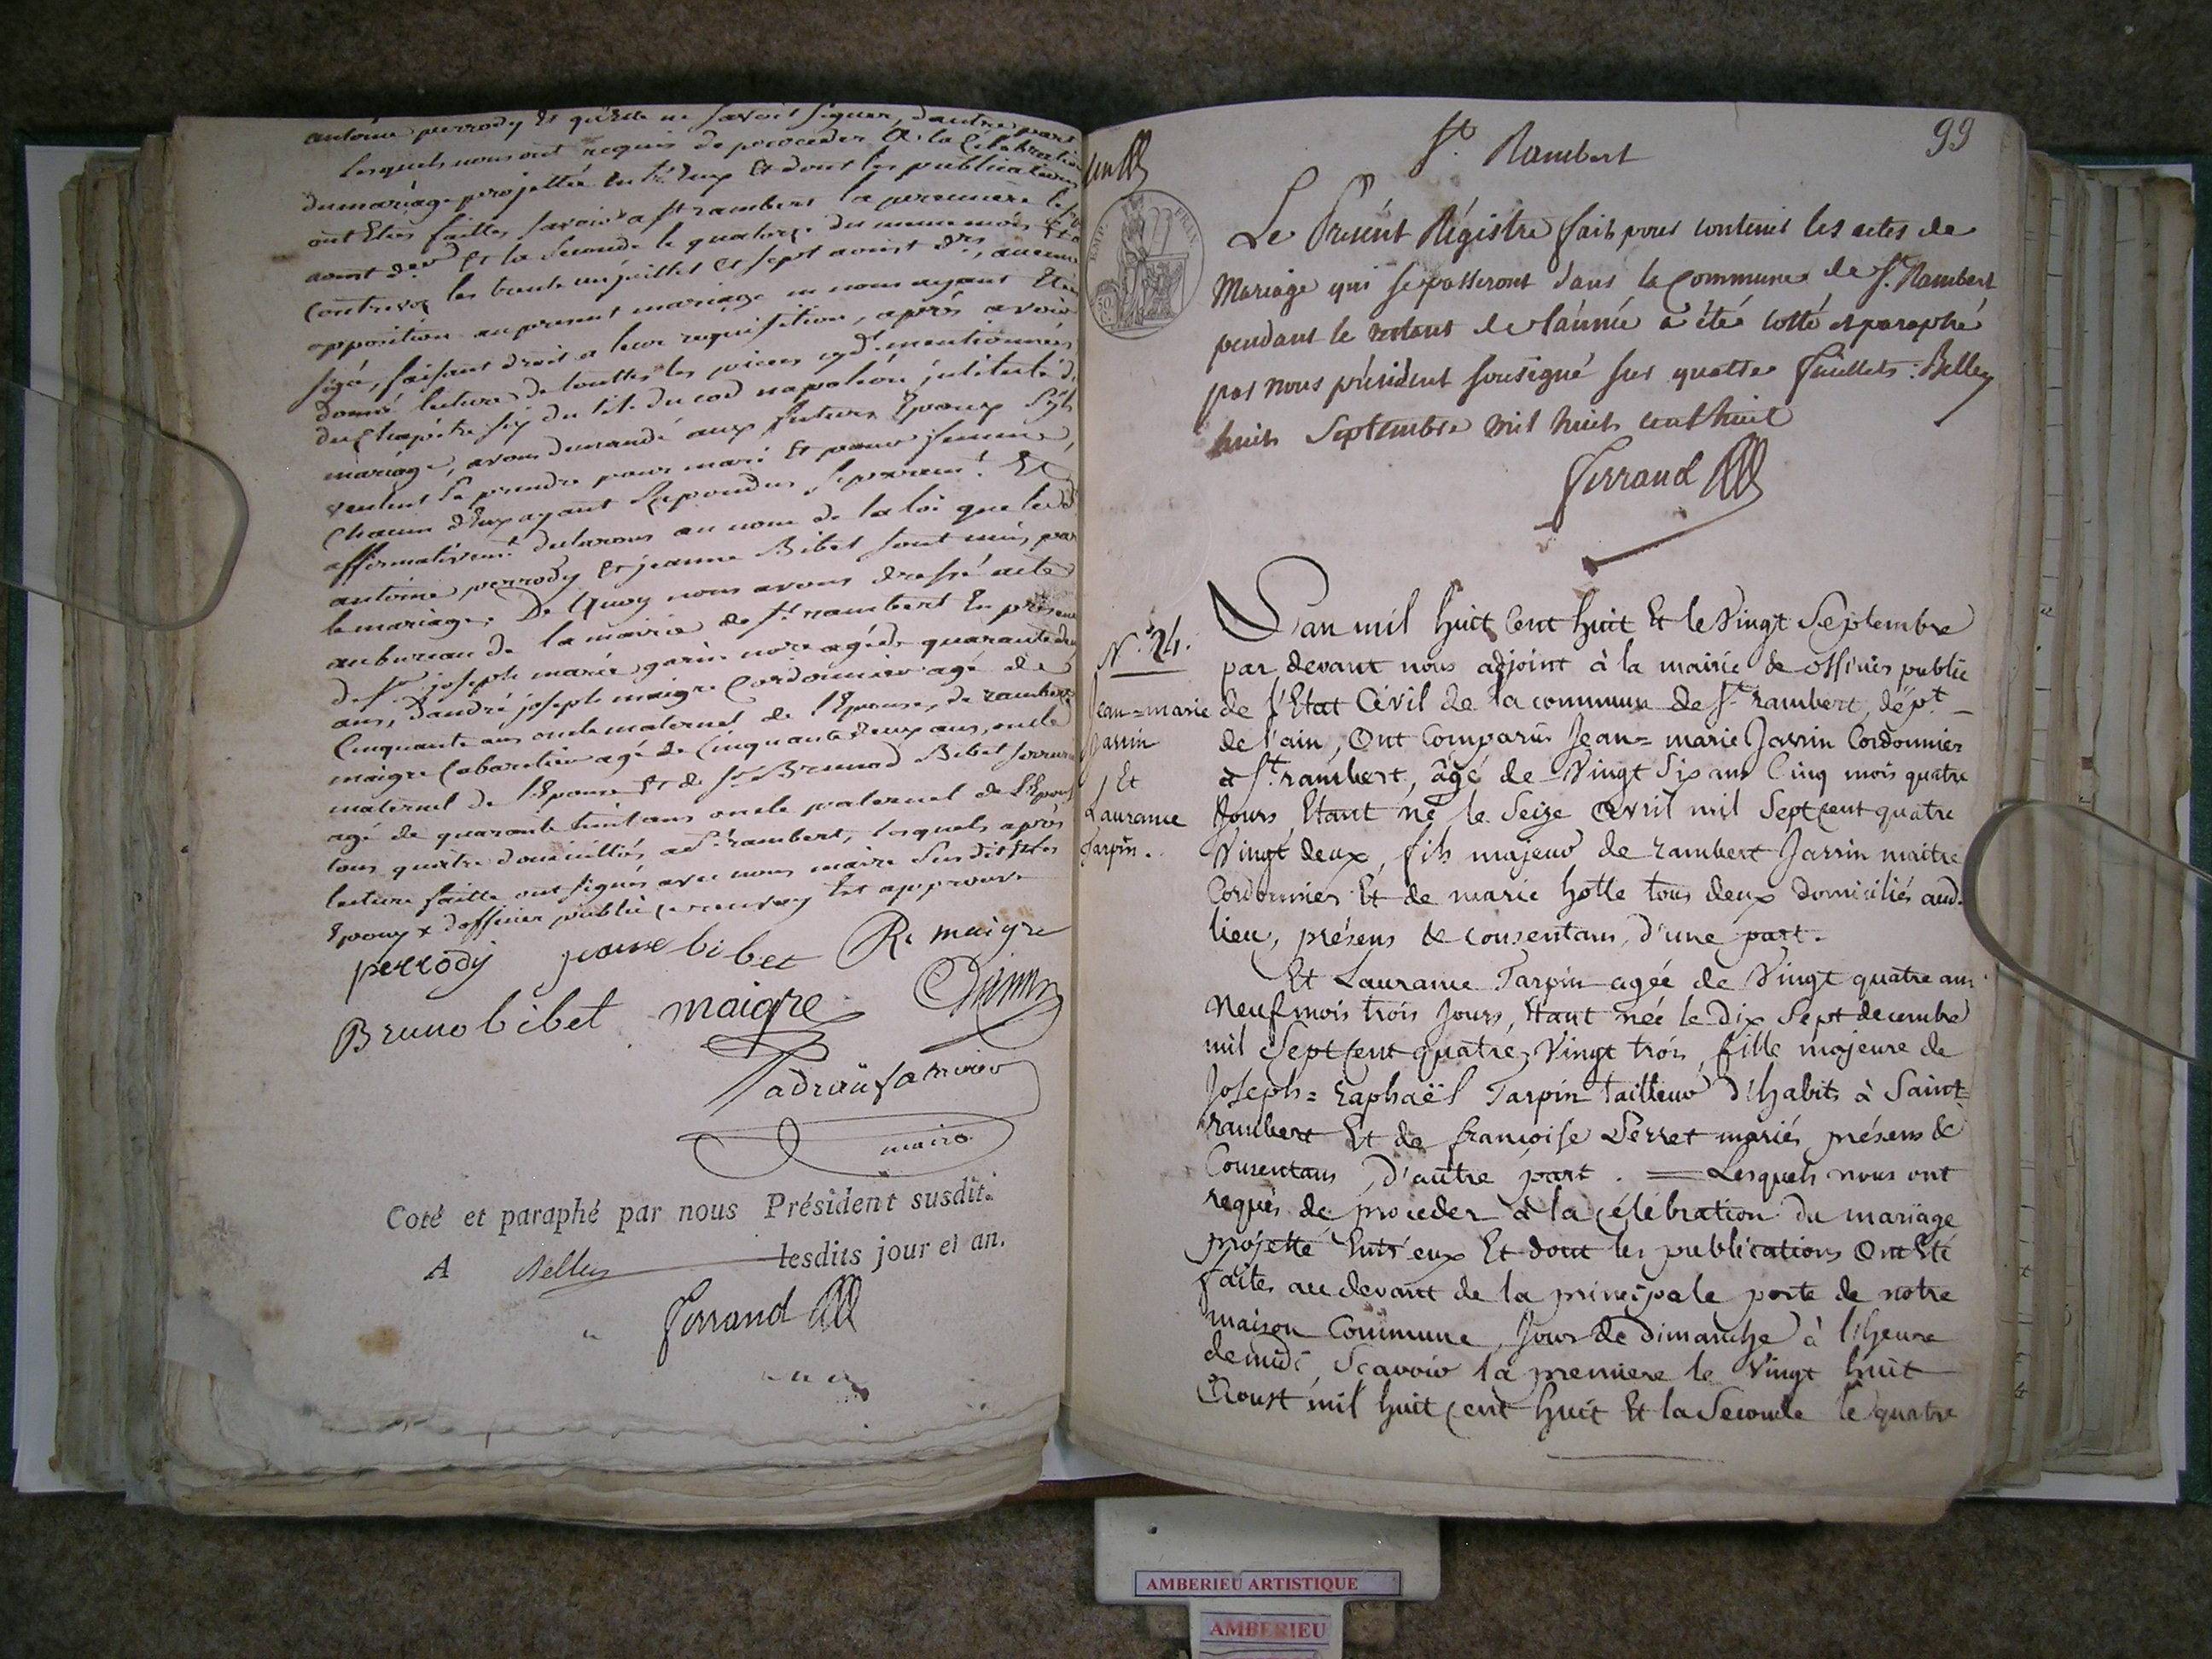 antoine perrody Et qu'Elle ne savoir signer, d'autre part
lesquels nous ont requis de proceder a la Célébration
du mariage projettée entr'Eux Et dont les publications
ont Etées faittes savoir a St rambert la premiere le
aoust der Et la seconde le quatorze du meme mois Et a
Contrevoz les trente un juillet Et sept aoust drs, aucune
opposition au present mariage ne nous ayant Eté
faisant droit a leur requisition, après avoir
donné lecture de touttes les pieces cyd. mentionnées
du chapitre six du tit. du cod napoleon intitulé du
mariage, avons demandé aux futurs Epoux s'ils
veulent se prendre pour mari Et pour femme,
Chacun d'Eux ayant Repondu separemt Et
affirmativemt declarons au nom de la loi que led
antoine perrody Et jeanne Bibet sont unis par
le mariage. De Quoy nous avons dressé acte
au bureau de la mairie de St rambert En présence
de Sr joseph marie garin nore agé de quarante deux
ans, d'andré joseph maigre Cordonnier agé de
Cinquante ans oncle maternel de l'Epouse, de rambert
maigre Cabaretier agé de Cinquante deux ans, oncle
maternel de l'Epouse Et de Sr Brunod Bibet serrurier
agé de quarante huit ans oncle paternel de l'Epouse
tous quatre domicilliés a St rambert, lesquels après
lecture faitte ont signés avec nous maire susdit Et les
Epoux x d'officier public ce renvoy Est approuvé
perrody jeanne bibet Rt maigre
Bruno bibet maigre Garin
maire
Coté et paraphé par nous Président susdit.
A Belley lesdits jour et an.
Ferrand
St. Rambert
99
EMP. FRAN.
Le Présent Régistre fait pour contenir les actes de
Mariage qui se passeront dans la Commune de St. Rambert
pendant le restant de l'année a été cotté et paraphé
par nous président soussigné sur quatre feuillets : Belley
huit Septembre mil huit cent huit
Ferrand
N.° 24.
Jean=marie
Jarrin
Et
Laurance
Tarpin.
L'an mil huit Cent huit Et le Vingt Septembre
par devant nous adjoint à la mairie & officier public
de l'Etat Civil de la commune de St. rambert, dépt.
de l'ain, Ont Comparus Jean=marie Jarrin Cordonnier
à St. rambert, âgé de Vingt Six ans Cinq mois quatre
Jours, Etant né le Seize avril mil Sept Cent quatre
Vingt deux, fils majeur de rambert Jarrin maitre
Cordonnier Et de marie hotte tous deux domiciliés aud.
lieu, présens & consentans, d'une part.
Et Laurance Tarpin agée de Vingt quatre ans
Neuf mois trois Jours, Etant née le Dix Sept decembre
mil Sept Cent quatre Vingt trois, fille majeure de
Joseph=raphaël Tarpin tailleur d'habits à Saint=
rambert Et de françoise Perret mariés, présens &
Consentans, d'autre part. = Lesquels nous ont
requis de proceder à la célébration du mariage
projetté Entr'eux Et dont les publications Ont Eté
faites au devant de la principale porte de notre
maison Commune, Jour de dimanche à l'heure
de midi, Scavoir la premiere le Vingt huit
Aoust mil huit Cent huit Et la Seconde le quatre
AMBERIEU ARTISTIQUE
AMBERIEU